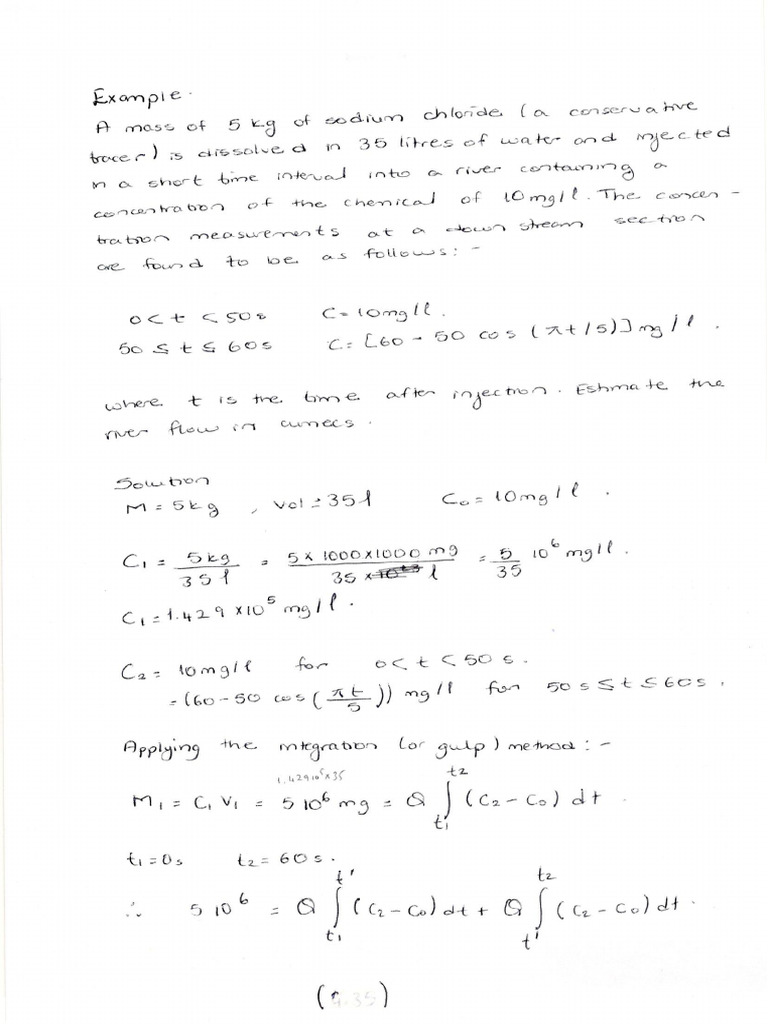 Example.
A mass of 5 kg of sodium chloride (a conservative
tracer) is dissolved in 35 litres of water and injected
in a short time interval into a river containing a
concentration of the chemical of 10mg/l. The concen-
tration measurements at a down stream section
are found to be as follows:-
0 < t < 50s C = 10mg/l.
50 ≤ t ≤ 60s C = [60 - 50 cos (πt/5)] mg/l.
where t is the time after injection. Estimate the
river flow in cumecs.
Solution
M = 5kg, Vol = 35l C₀ = 10mg/l.
C₁ = 5kg/35l = 5×1000×1000 mg/35 × l = 5/35 10⁶ mg/l.
C₁ = 1.429 × 10⁵ mg/l.
C₂ = 10mg/l for 0 < t < 50s.
= (60 - 50 cos (πt/5)) mg/l for 50s ≤ t ≤ 60s.
Applying the integration (or gulp) method:-
1.429 10⁵ × 35
M₁ = C₁V₁ = 5 10⁶ mg = Q ∫_{t₁}^{t₂} (C₂ - C₀) dt.
t₁ = 0s t₂ = 60s.
∴ 5 10⁶ = Q ∫_{t₁}^{t'} (C₂ - C₀) dt + Q ∫_{t'}^{t₂} (C₂ - C₀) dt.